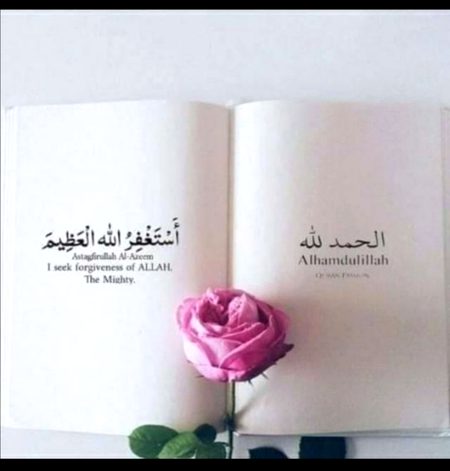 أَسْتَغْفِرُ اللهَ الْعَظِيمَ
Astagfirullah Al-Azeem
I seek forgiveness of ALLAH,
The Mighty.
الحمد لله
Alhamdulillah